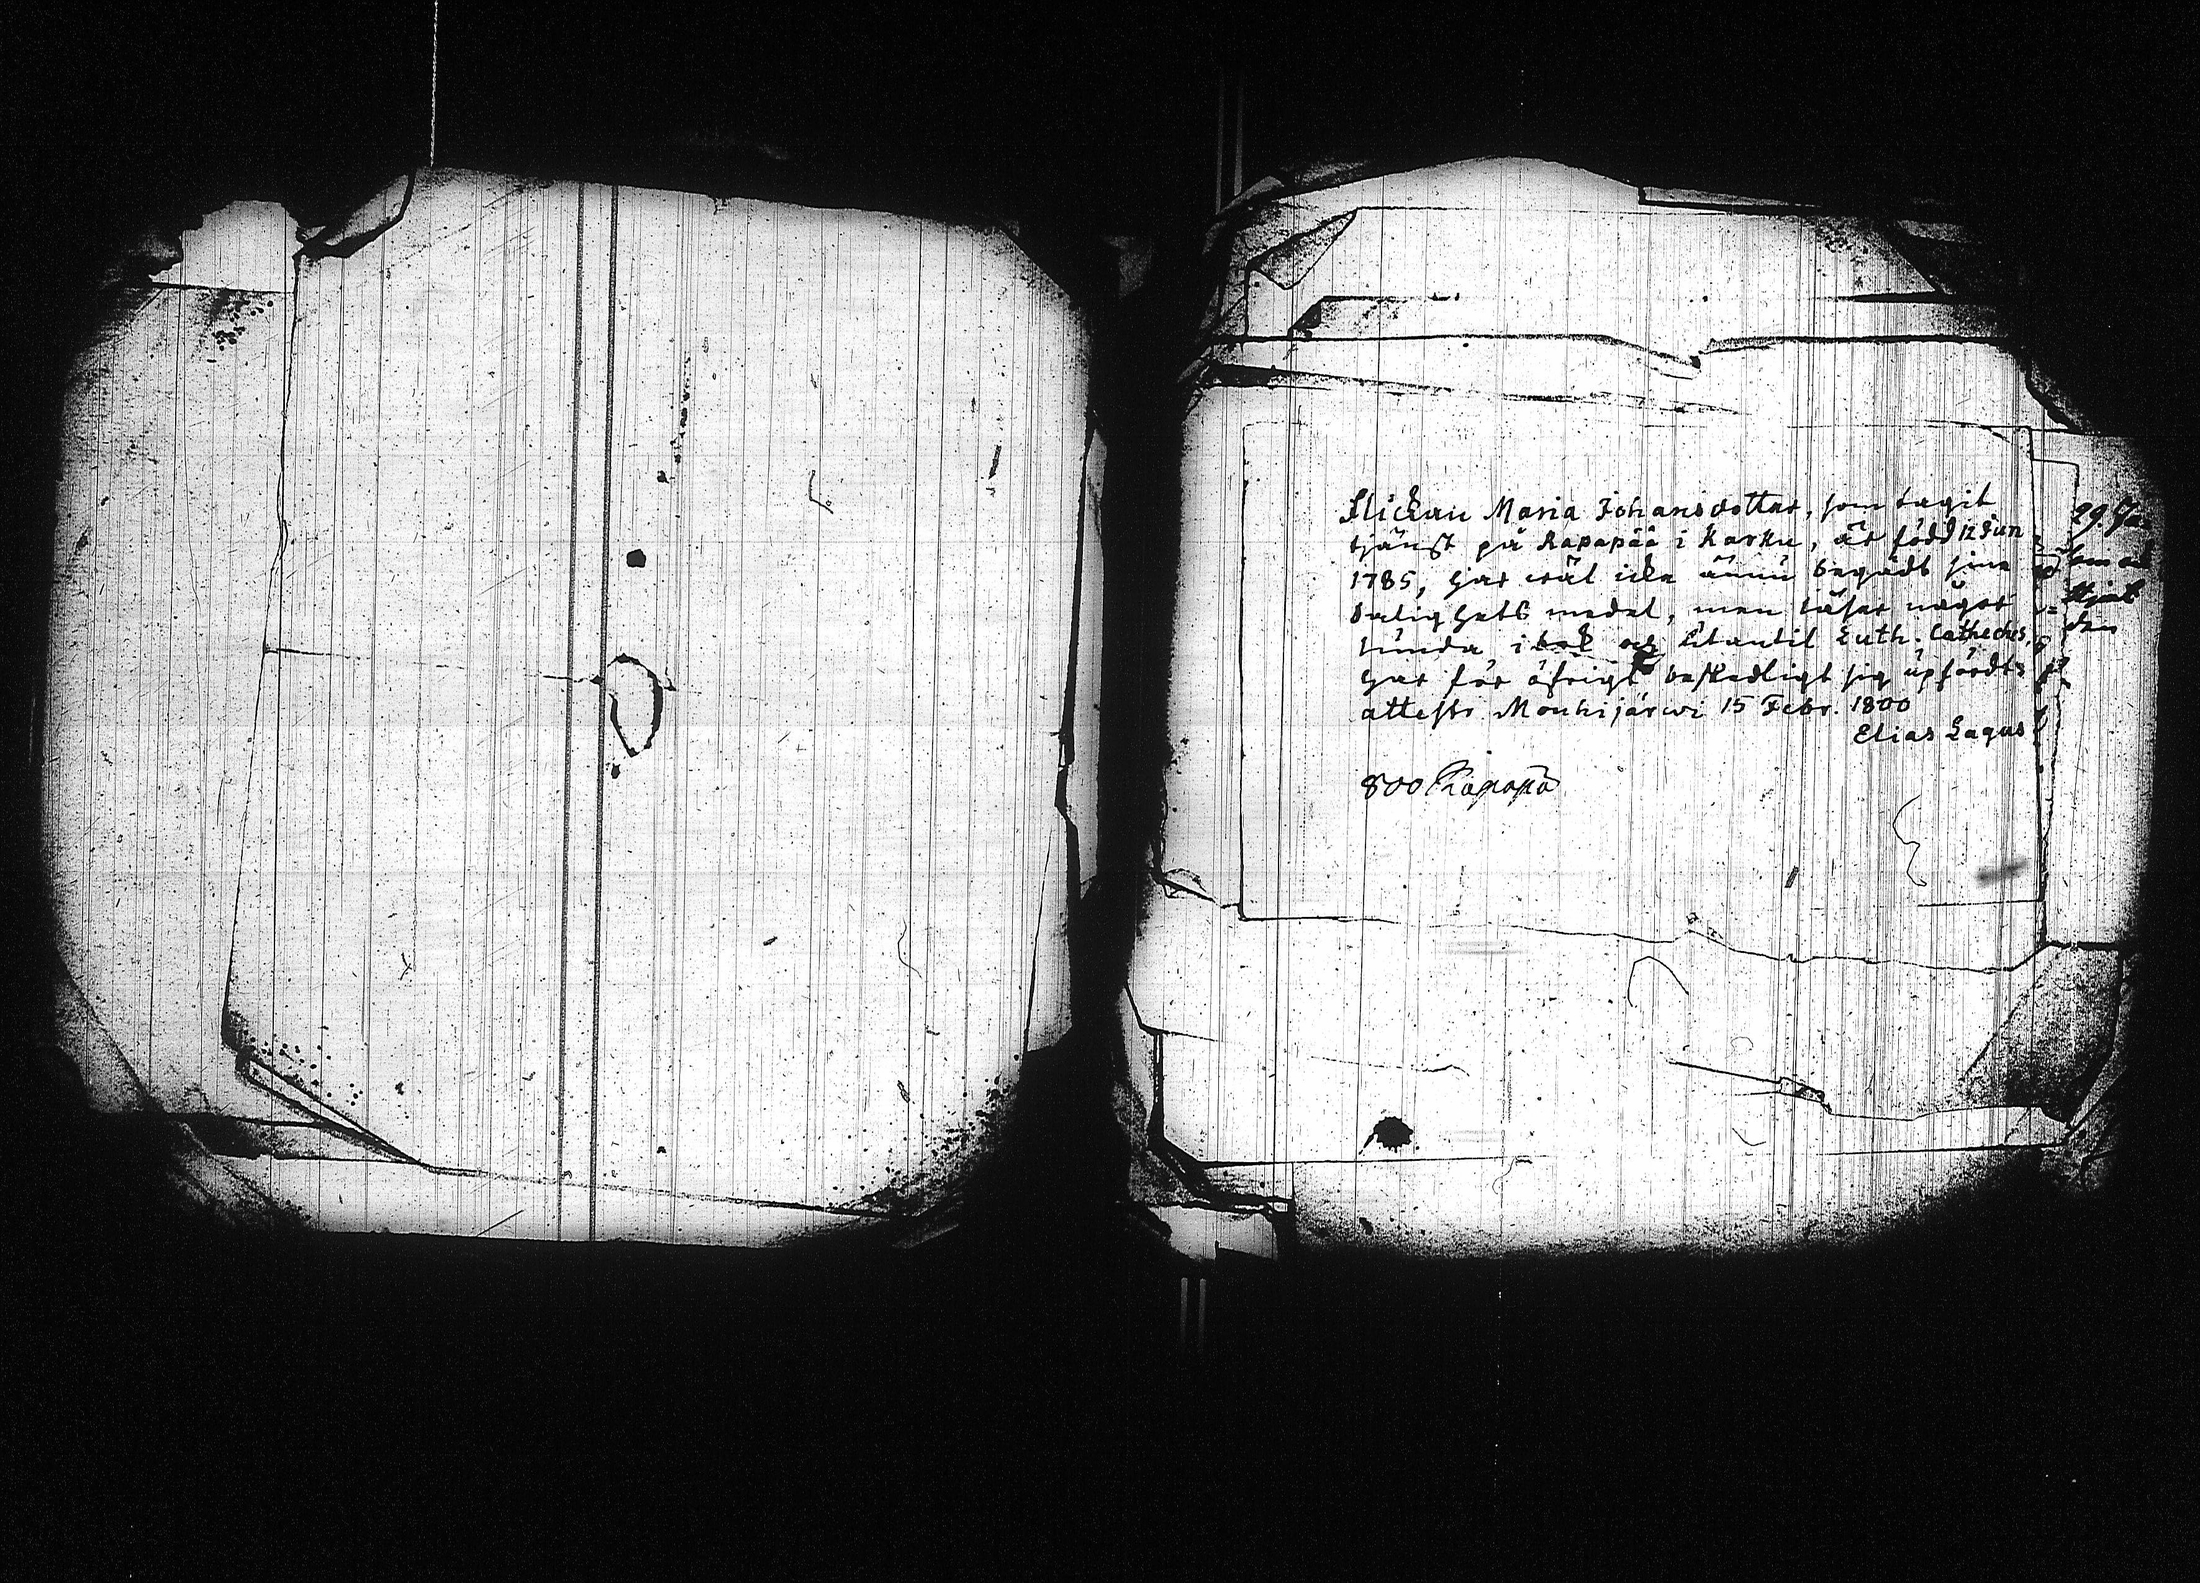 Flickan Maria Johansdotter, som tagit
tjänst på Rapapää i Karku, är född 12 Jun
1785, har wäl icke ännu begådt sina
Salighets medel, men läser något
lunda i bok och utantil Luth. Catheches,
har för öfrigt beskedligt sig upfördt
attestr. Mouhijärwi 15 Febr. 1800
Elias Lagus
800 Rapapä
29
den